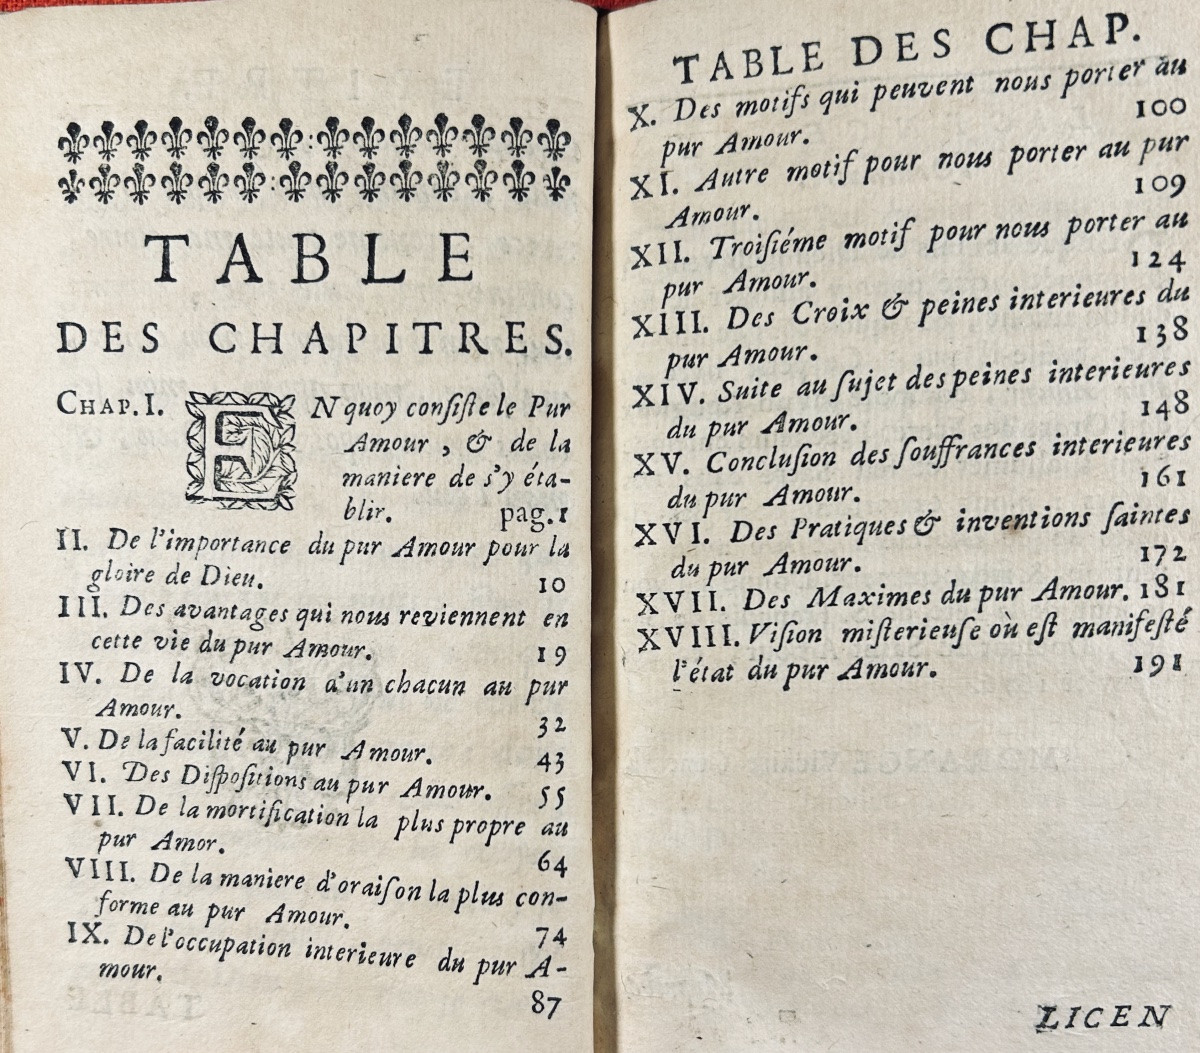 TABLE
DES CHAPITRES.
CHAP. I. EN quoy conſiſte le Pur
Amour, & de la
maniere de s'y éta-
blir. pag. 1
II. De l'importance du pur Amour pour la
gloire de Dieu. 10
III. Des avantages qui nous reviennent en
cette vie du pur Amour. 19
IV. De la vocation d'un chacun au pur
Amour. 32
V. De la facilité au pur Amour. 43
VI. Des Diſpoſitions au pur Amour. 55
VII. De la mortification la plus propre au
pur Amor. 64
VIII. De la maniere d'oraiſon la plus con-
forme au pur Amour. 74
IX. De l'occupation interieure du pur A-
mour. 87
TABLE DES CHAP.
X. Des motifs qui peuvent nous porter au
pur Amour. 100
XI. Autre motif pour nous porter au pur
Amour. 109
XII. Troiſiéme motif pour nous porter au
pur Amour. 124
XIII. Des Croix & peines interieures du
pur Amour. 138
XIV. Suite au ſujet des peines interieures
du pur Amour. 148
XV. Concluſion des ſouffrances interieures
du pur Amour. 161
XVI. Des Pratiques & inventions ſaintes
du pur Amour. 172
XVII. Des Maximes du pur Amour. 181
XVIII. Viſion miſterieuſe où eſt manifeſté
l'état du pur Amour. 191
LICEN